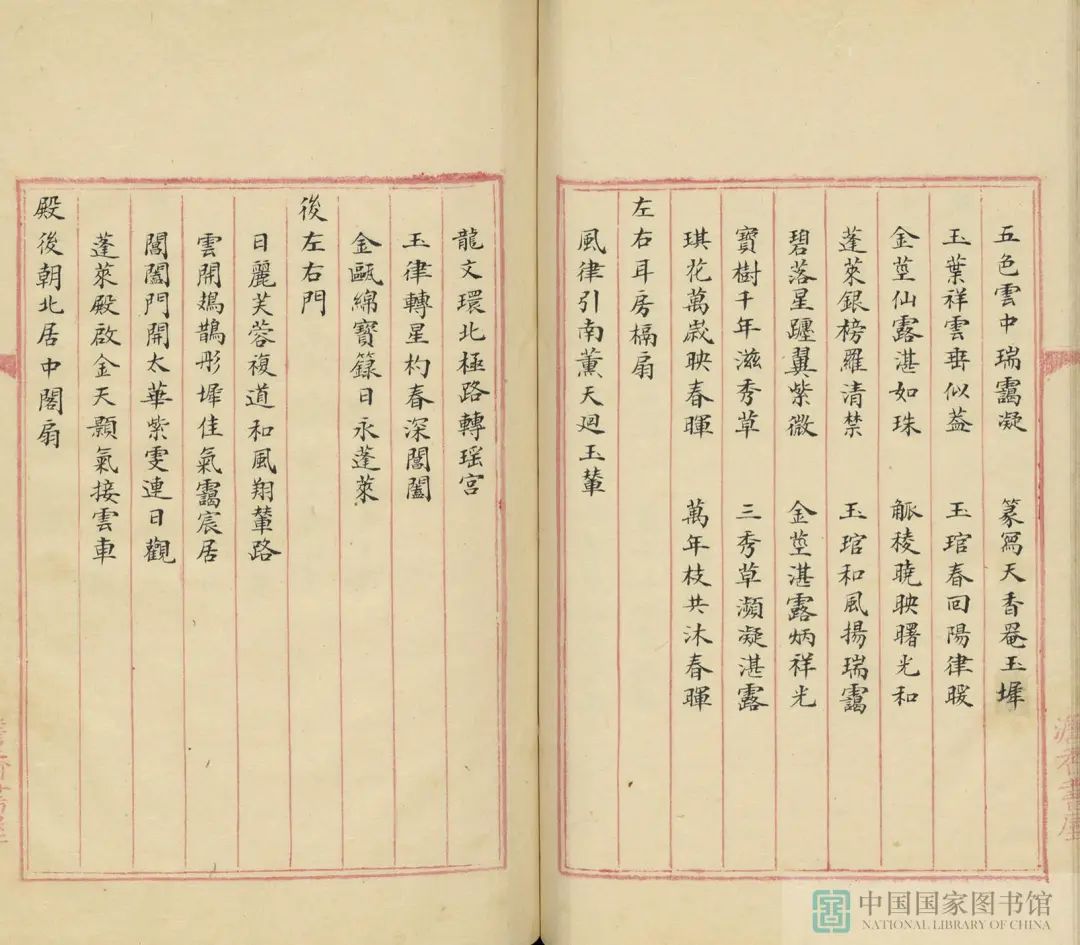 五色雲中瑞靄凝　篆寫天香罨玉墀
玉葉祥雲垂似葢　玉琯春回陽律暖
金莖仙露湛如珠　觚稜曉映曙光和
蓬萊銀榜羅清禁　玉琯和風揚瑞靄
碧落星躔翼紫微　金莖湛露炳祥光
寶樹千年滋秀草　三秀草瀕凝湛露
琪花萬嵗映春暉　萬年枝共沐春暉
左右耳房槅扇
風律引南薰天廻玉輦
龍文環北極路轉瑶宫
玉律轉星杓春深閶闔
金甌綿寶籙日永蓬萊
後左右門
日麗芙蓉複道和風翔輦路
雲開鳷鵲彤墀佳氣靄宸居
閶闔門開太華紫雯連日觀
蓬萊殿啟金天顥氣接雲車
殿後朝北居中閣扇
澹香書屋
中国国家图书馆
NATIONAL LIBRARY OF CHINA